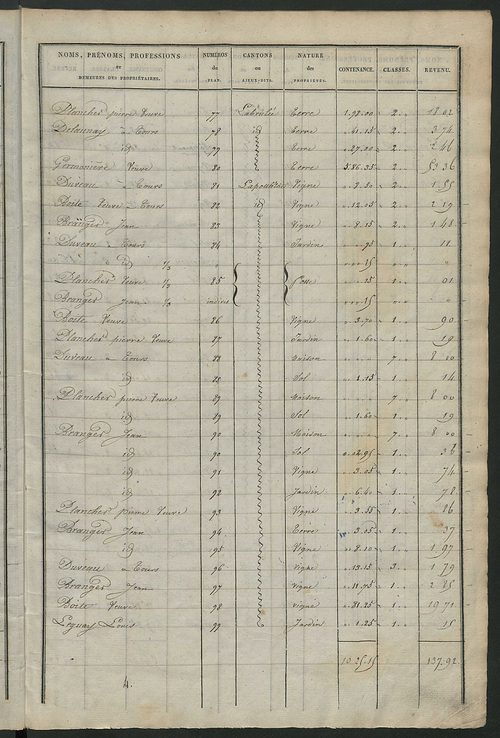 NOMS, PRÉNOMS, PROFESSIONS et DEMEURES DES PROPRIÉTAIRES. NUMÉROS du PLAN. CANTONS ou LIEUX-DITS. NATURE des PROPRIÉTÉS. CONTENANCE. CLASSES. REVENU.
Plancher pierre Veuve 77 Terre 1.92.00 2 18 02
Delaunay à Cours 78 id Terre 41.15 2 3 74
id 79 Terre 27.00 2 2 46
Germonière Veuve 80 Terre 5.86.35 2 53 36
Duveau à Cours 81 Vigne 2 1 55
Boite Veuve à Cours 82 id Vigne 12.05 2 2 19
Branger Jean 83 Vigne 8.15 2 1 48
Duveau à Cours 84 Jardin 95 1 11
id 1/3 15
Plancher Veuve 1/3 85 15 1 01
Branger Jean 1/3 indivis 15
Boite Veuve 86 Vigne 3.70 1 90
Plancher pierre Veuve 87 Jardin 1.60 1 19
Duveau à Cours 88 Maison 7 8 10
id 88 Sol 1.15 1 14
Plancher pierre Veuve 89 Maison 7 8 00
id 89 Sol 1.60 1 19
Branger Jean 90 Maison 7 8 00
id 90 Sol 12.95 1 36
id 91 Vigne 3.05 1 74
id 92 Jardin 6.40 1 78
Plancher pierre Veuve 93 Vigne 3.55 1 86
Branger Jean 94 Terre 3.05 1 37
id 95 Vigne 8.10 1 1 97
Duveau à Cours 96 Vigne 13.15 3 1 79
Branger Jean 97 Vigne 11.75 1 2 85
Boite Veuve 98 Vigne 81.25 1 19 71
Louis 99 Jardin 1.25 1 15
10.25.15 137.92
4.